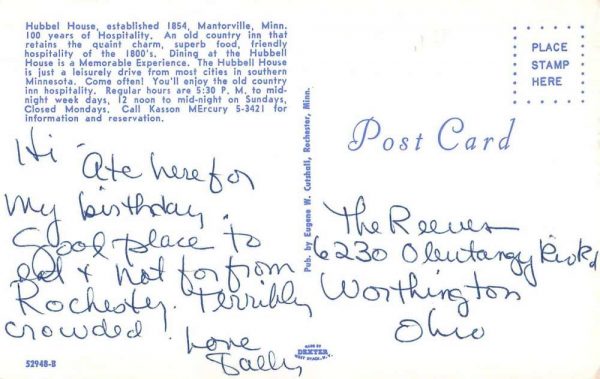 Hubbel House, established 1854, Mantorville, Minn.
100 years of Hospitality. An old country inn that
retains the quaint charm, superb food, friendly
hospitality of the 1800's. Dining at the Hubbell
House is a Memorable Experience. The Hubbell House
is just a leisurely drive from most cities in southern
Minnesota. Come often! You'll enjoy the old country
inn hospitality. Regular hours are 5:30 P. M. to mid-
night week days, 12 noon to mid-night on Sundays,
Closed Mondays. Call Kasson MErcury 5-3421 for
information and reservation.
Hi -
Ate here for
my birthday.
Good place to
eat & not far from
Rochester. Terribly
crowded!
Love
Sally
52948-B
Pub. by Eugene W. Cutshall, Rochester, Minn.
MADE BY
DEXTER
WEST NYACK, N.Y.
PLACE
STAMP
HERE
Post Card
The Reeves
6230 Olentangy Riv Rd
Worthington
Ohio